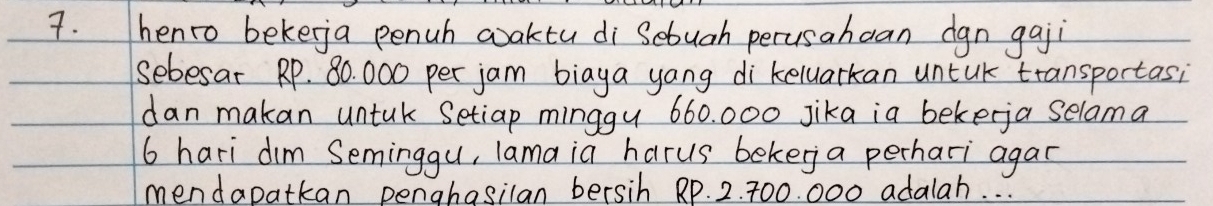 7. henro bekerja penuh waktu di sebuah perusahaan dgn gaji
sebesar RP. 80.000 per jam biaya yang di keluarkan untuk transportasi
dan makan untuk setiap minggu 660.000 jika ia bekerja selama
6 hari dlm seminggu, lama ia harus bekerja perhari agar
mendapatkan penghasilan bersih RP. 2.700.000 adalah...